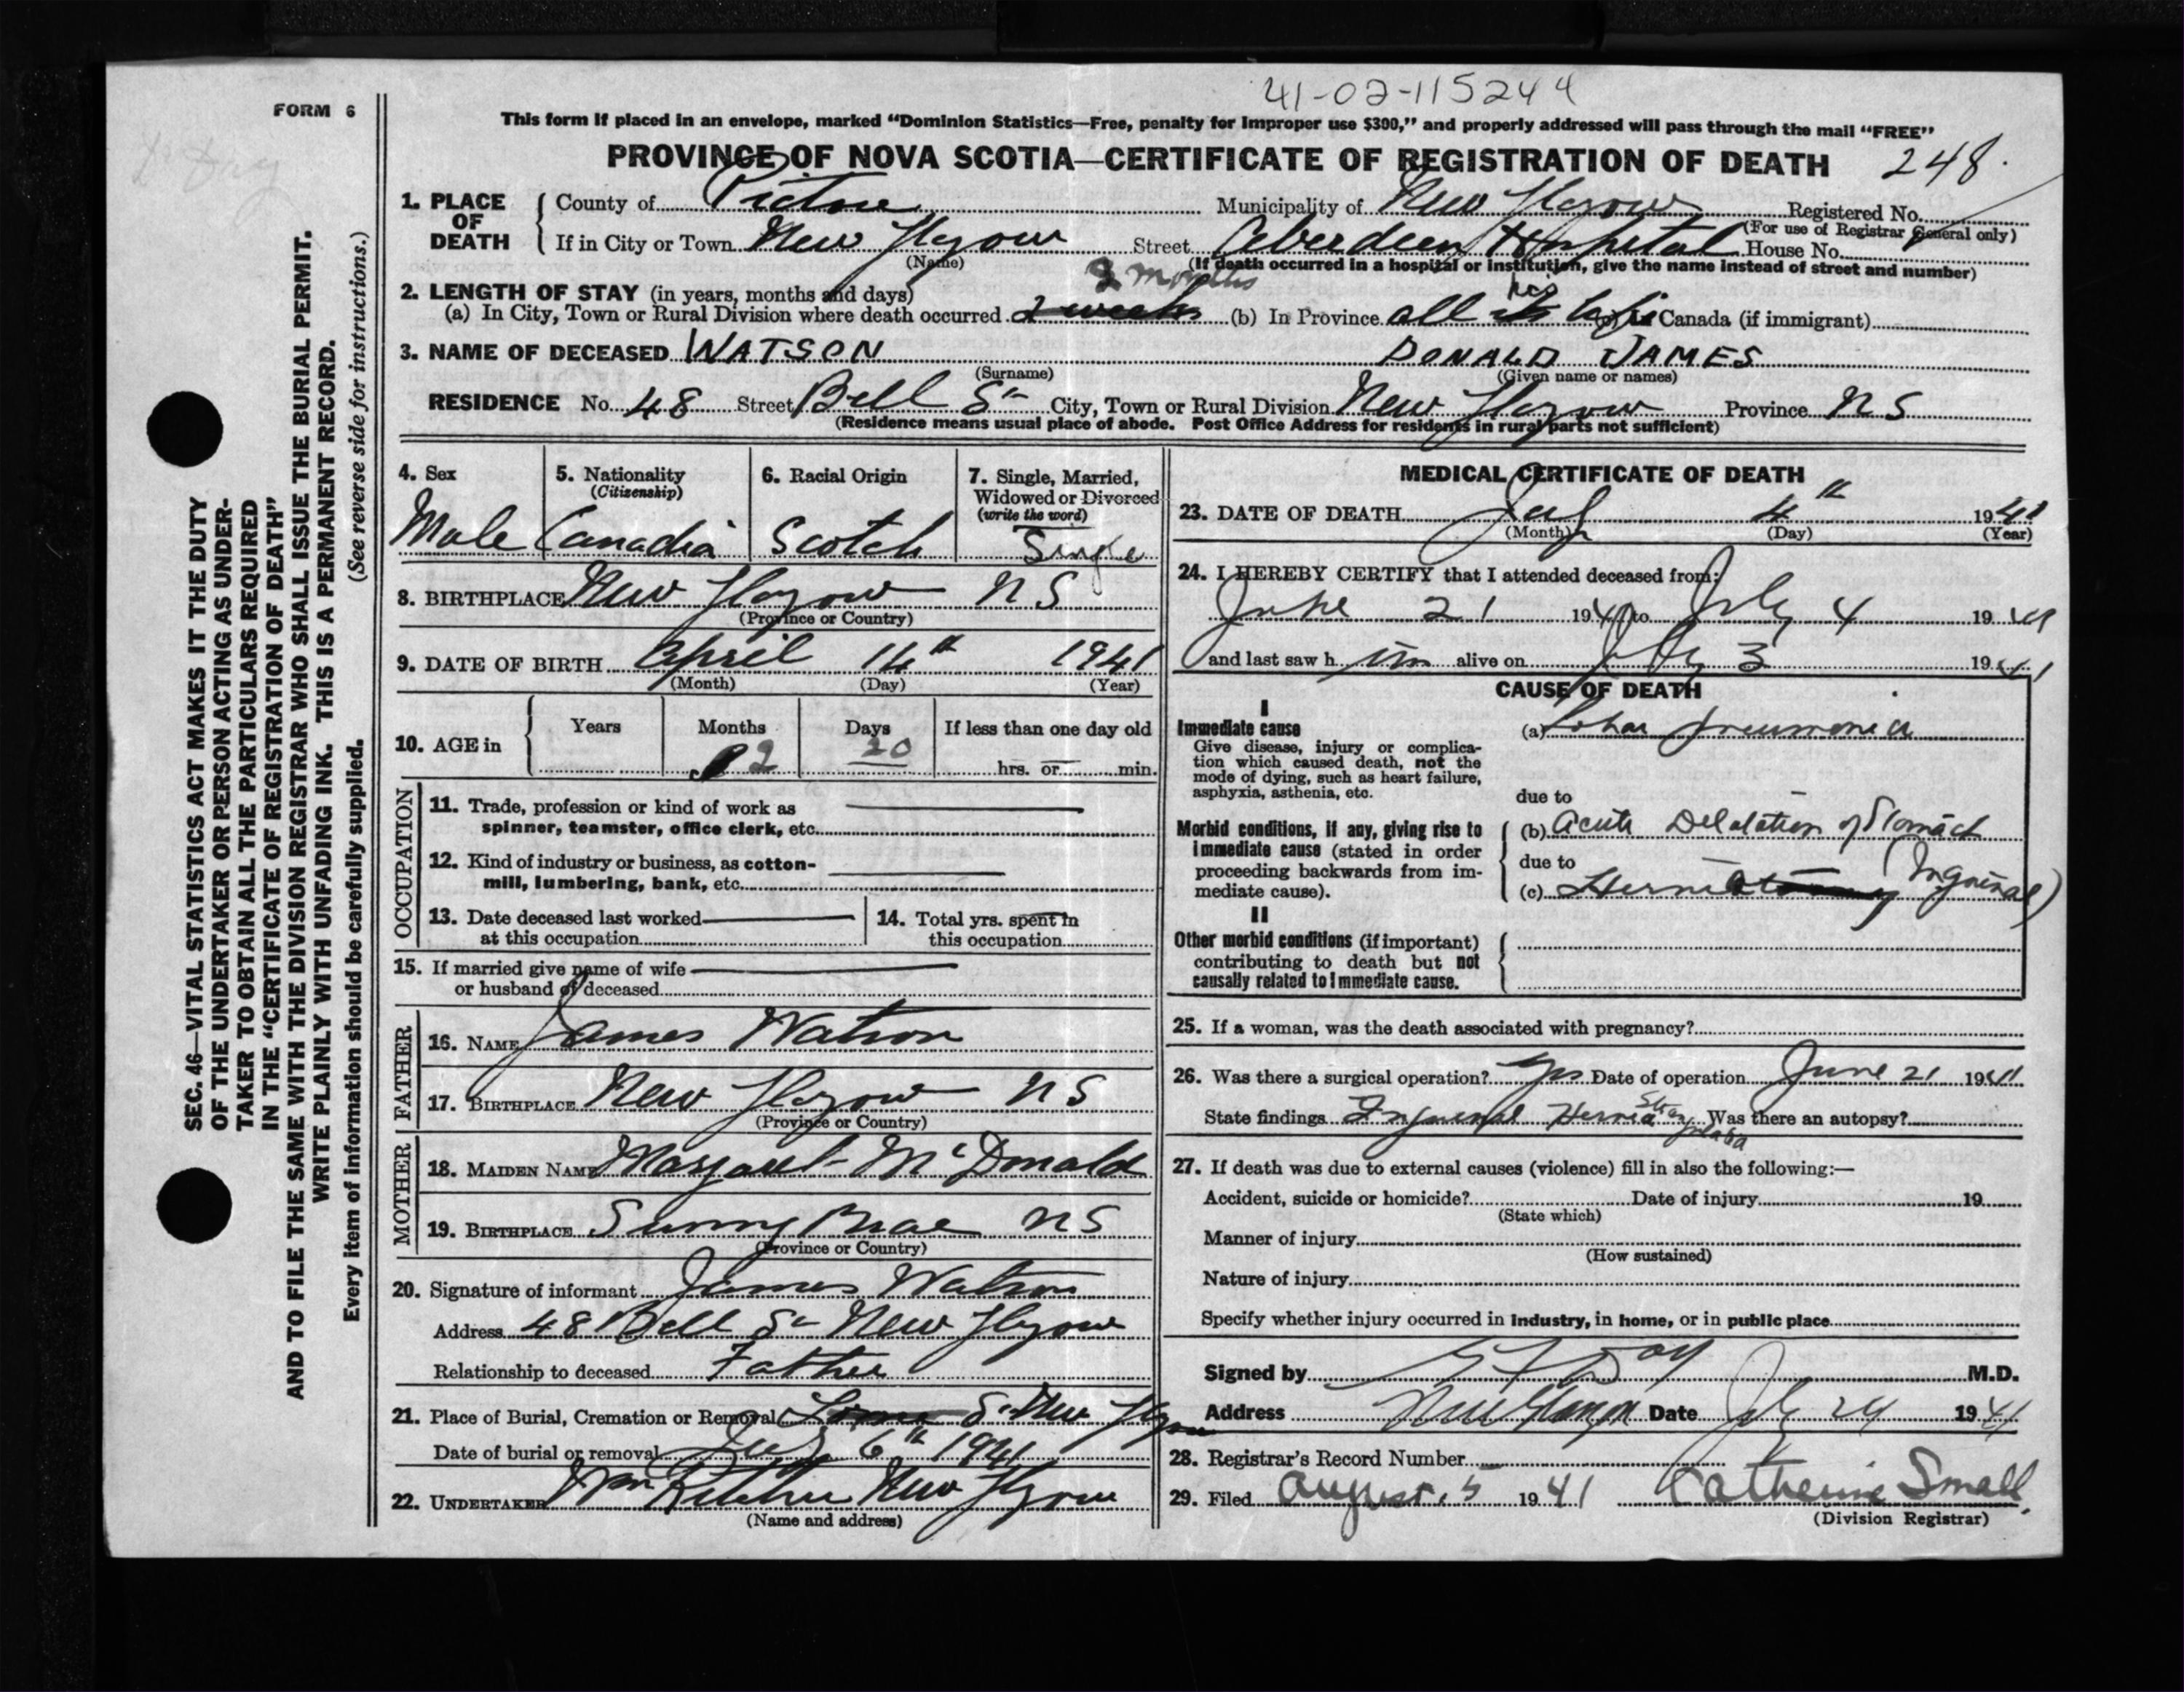 41-02-115244
FORM 6
This form if placed in an envelope, marked "Dominion Statistics—Free, penalty for improper use $300," and properly addressed will pass through the mail "FREE"
PROVINCE OF NOVA SCOTIA—CERTIFICATE OF REGISTRATION OF DEATH 248.
1. PLACE OF DEATH County of Pictou Municipality of New Glasgow Registered No.
(For use of Registrar General only)
If in City or Town New Glasgow Street Aberdeen Hospital House No.
(Name) (If death occurred in a hospital or institution, give the name instead of street and number)
2. LENGTH OF STAY (in years, months and days) 2 months
(a) In City, Town or Rural Division where death occurred 2 weeks (b) In Province all its his life (c) In Canada (if immigrant)
3. NAME OF DECEASED WATSON DONALD JAMES
(Surname) (Given name or names)
RESIDENCE No. 48 Street Bell St City, Town or Rural Division New Glasgow Province NS
(Residence means usual place of abode. Post Office Address for residents in rural parts not sufficient)
4. Sex 5. Nationality 6. Racial Origin 7. Single, Married,
(Citizenship) Widowed or Divorced
(write the word)
Male Canadia Scotch Single
8. BIRTHPLACE New Glasgow NS
(Province or Country)
9. DATE OF BIRTH April 14th 1941
(Month) (Day) (Year)
10. AGE in Years Months Days If less than one day old
2 20 hrs. or min.
OCCUPATION
11. Trade, profession or kind of work as
spinner, teamster, office clerk, etc.
12. Kind of industry or business, as cotton-
mill, lumbering, bank, etc.
13. Date deceased last worked
at this occupation
14. Total yrs. spent in
this occupation
15. If married give name of wife
or husband of deceased
FATHER
16. NAME James Watson
17. BIRTHPLACE New Glasgow NS
(Province or Country)
MOTHER
18. MAIDEN NAME Margaret McDonald
19. BIRTHPLACE Sunny Brae NS
(Province or Country)
20. Signature of informant James Watson
Address 48 Bell St New Glasgow
Relationship to deceased Father
21. Place of Burial, Cremation or Removal St New Glasgow
Date of burial or removal July 6th 1941
22. UNDERTAKER Wm Ritchie New Glasgow
(Name and address)
MEDICAL CERTIFICATE OF DEATH
23. DATE OF DEATH July 4th 1941
(Month) (Day) (Year)
24. I HEREBY CERTIFY that I attended deceased from:
June 21 1941 to July 4 1941
and last saw him alive on July 3 1941
CAUSE OF DEATH
I
Immediate cause (a) Lobar pneumonia
Give disease, injury or complica-
tion which caused death, not the
mode of dying, such as heart failure,
asphyxia, asthenia, etc.
due to
Morbid conditions, if any, giving rise to
immediate cause (stated in order
proceeding backwards from im-
mediate cause).
(b) Acute Dilatation of Stomach
due to
(c) Hernia (Inguinal)
II
Other morbid conditions (if important)
contributing to death but not
causally related to immediate cause.
25. If a woman, was the death associated with pregnancy?
26. Was there a surgical operation? Yes Date of operation June 21 1941
State findings Inguinal Hernia Was there an autopsy?
27. If death was due to external causes (violence) fill in also the following:—
Accident, suicide or homicide? Date of injury 19
(State which)
Manner of injury
(How sustained)
Nature of injury
Specify whether injury occurred in industry, in home, or in public place
Signed by Day M.D.
Address New Glasgow Date July 24 1941
28. Registrar's Record Number
29. Filed August 5 1941 Catherine Small
(Division Registrar)
SEC. 46—VITAL STATISTICS ACT MAKES IT THE DUTY
OF THE UNDERTAKER OR PERSON ACTING AS UNDER-
TAKER TO OBTAIN ALL THE PARTICULARS REQUIRED
IN THE "CERTIFICATE OF REGISTRATION OF DEATH"
AND TO FILE THE SAME WITH THE DIVISION REGISTRAR WHO SHALL ISSUE THE BURIAL PERMIT.
WRITE PLAINLY WITH UNFADING INK. THIS IS A PERMANENT RECORD.
Every item of information should be carefully supplied. (See reverse side for instructions.)